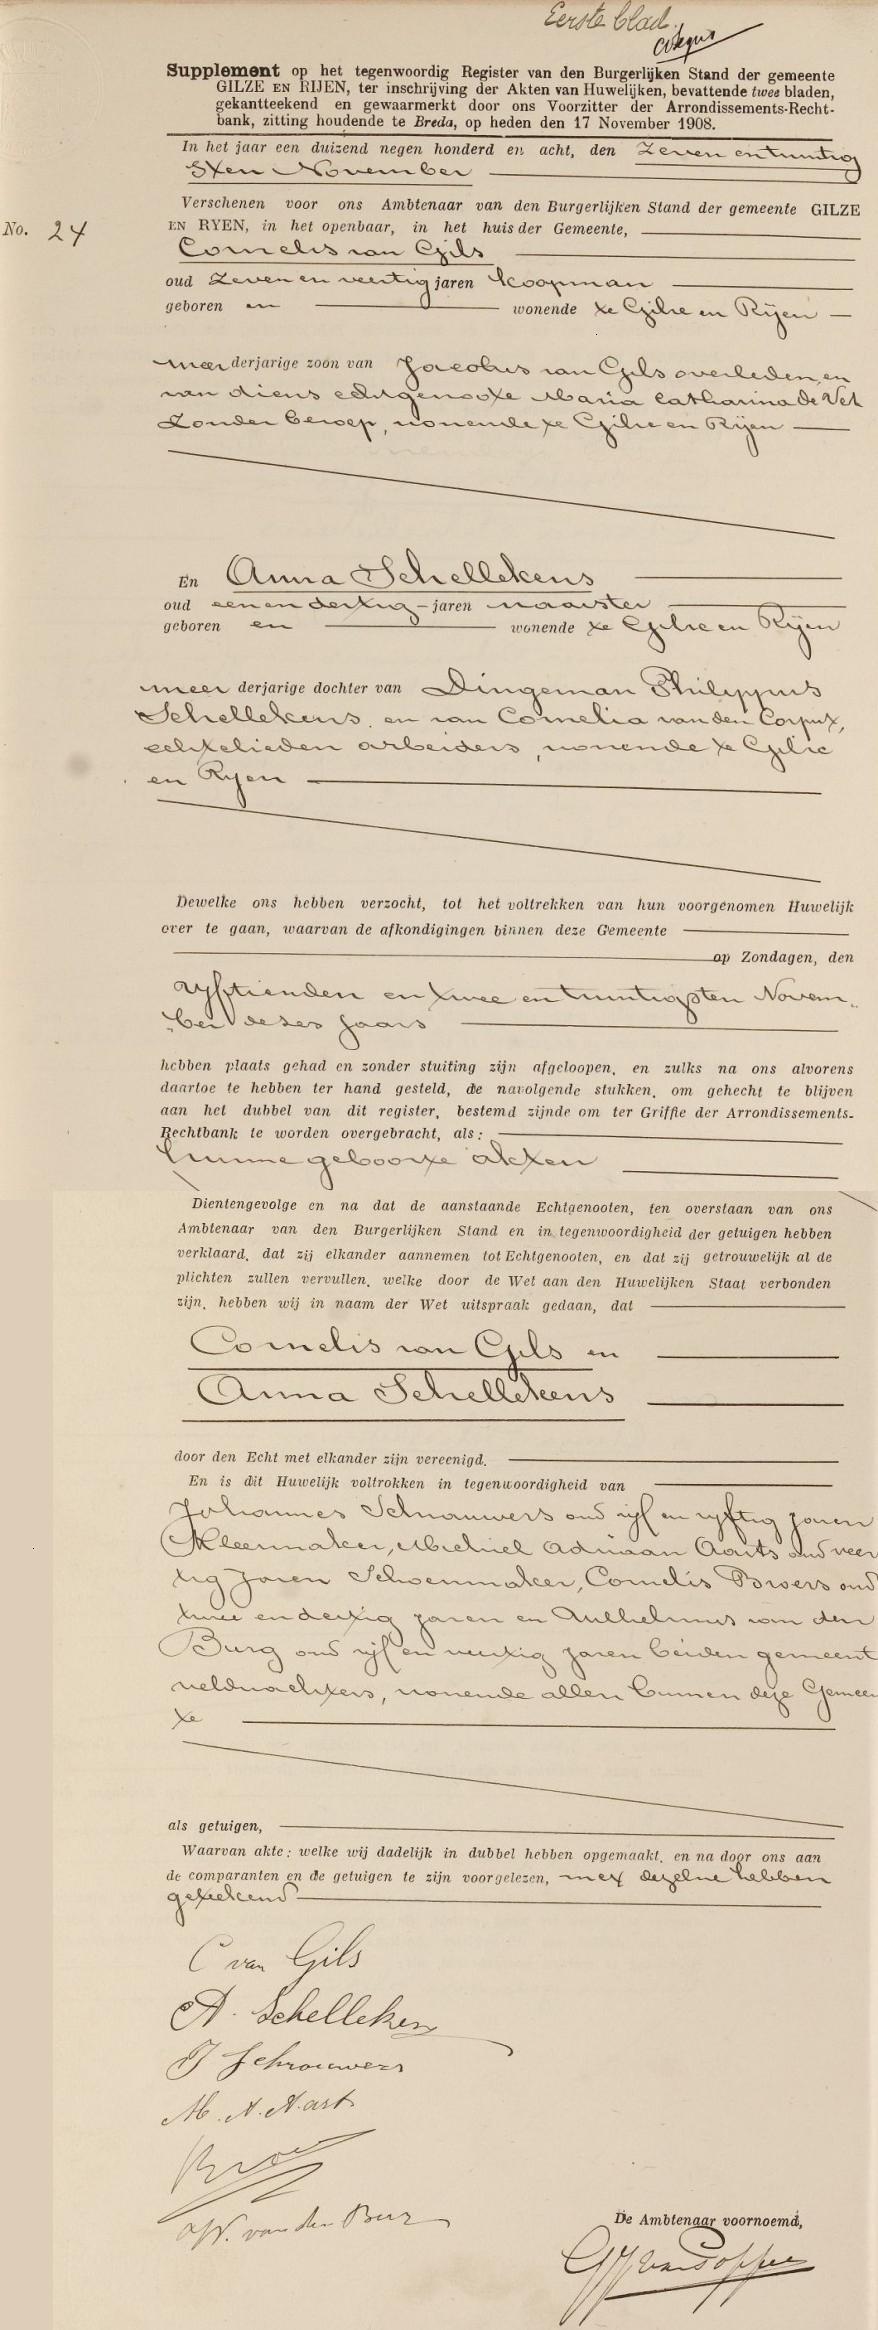 Eerste blad.
Supplement op het tegenwoordig Register van den Burgerlijken Stand der gemeente
GILZE EN RIJEN, ter inschrijving der Akten van Huwelijken, bevattende twee bladen,
gekantteekend en gewaarmerkt door ons Voorzitter der Arrondissements-Recht-
bank, zitting houdende te Breda, op heden den 17 November 1908.
In het jaar een duizend negen honderd en acht, den Zeven en twintig
sten November
Verschenen voor ons Ambtenaar van den Burgerlijken Stand der gemeente GILZE
No. 24 EN RYEN, in het openbaar, in het huis der Gemeente,
Cornelis van Gils
oud Zeven en veertig jaren Koopman
geboren en wonende te Gilze en Rijen
meerderjarige zoon van Jacobus van Gils overleden, en
van diens echtgenoote Maria Catharina de Vet
Zonder beroep, wonende te Gilze en Rijen
En Anna Schellekens
oud een en dertig jaren naaister
geboren en wonende te Gilze en Rijen
meerderjarige dochter van Dingeman Philippus
Schellekens, en van Cornelia van den Corput,
echtelieden arbeiders, wonende te Gilze
en Ryen
Dewelke ons hebben verzocht, tot het voltrekken van hun voorgenomen Huwelijk
over te gaan, waarvan de afkondigingen binnen deze Gemeente
op Zondagen, den
vyftienden en twee en twintigsten Novem„
„ber dezes jaars
hebben plaats gehad en zonder stuiting zijn afgeloopen, en zulks na ons alvorens
daartoe te hebben ter hand gesteld, de navolgende stukken, om gehecht te blijven
aan het dubbel van dit register, bestemd zijnde om ter Griffie der Arrondissements-
Rechtbank te worden overgebracht, als:
hunne geboorte akten
Dientengevolge en na dat de aanstaande Echtgenooten, ten overstaan van ons
Ambtenaar van den Burgerlijken Stand en in tegenwoordigheid der getuigen hebben
verklaard, dat zij elkander aannemen tot Echtgenooten, en dat zij getrouwelijk al de
plichten zullen vervullen, welke door de Wet aan den Huwelijken Staat verbonden
zijn, hebben wij in naam der Wet uitspraak gedaan, dat
Cornelis van Gils en
Anna Schellekens
door den Echt met elkander zijn vereenigd.
En is dit Huwelijk voltrokken in tegenwoordigheid van
Johannes Schrauwers oud vijf en vyftig jaren
Kleermaker, Michiel Adriaan Aarts oud veer
tig Jaren Schoenmaker, Cornelis Broers oud
twee en dertig jaren en Wilhelmus van den
Burg oud vijf en veertig jaren beiden gemeente
veldwachters, wonende allen binnen deze Gemeen
te
als getuigen,
Waarvan akte: welke wij dadelijk in dubbel hebben opgemaakt, en na door ons aan
de comparanten en de getuigen te zijn voorgelezen, met dezelve hebben
geteekend
C van Gils
A. Schelleken
J Schrouwers
M. A. Aart
Broe
W. van den Burg
De Ambtenaar voornoemd,